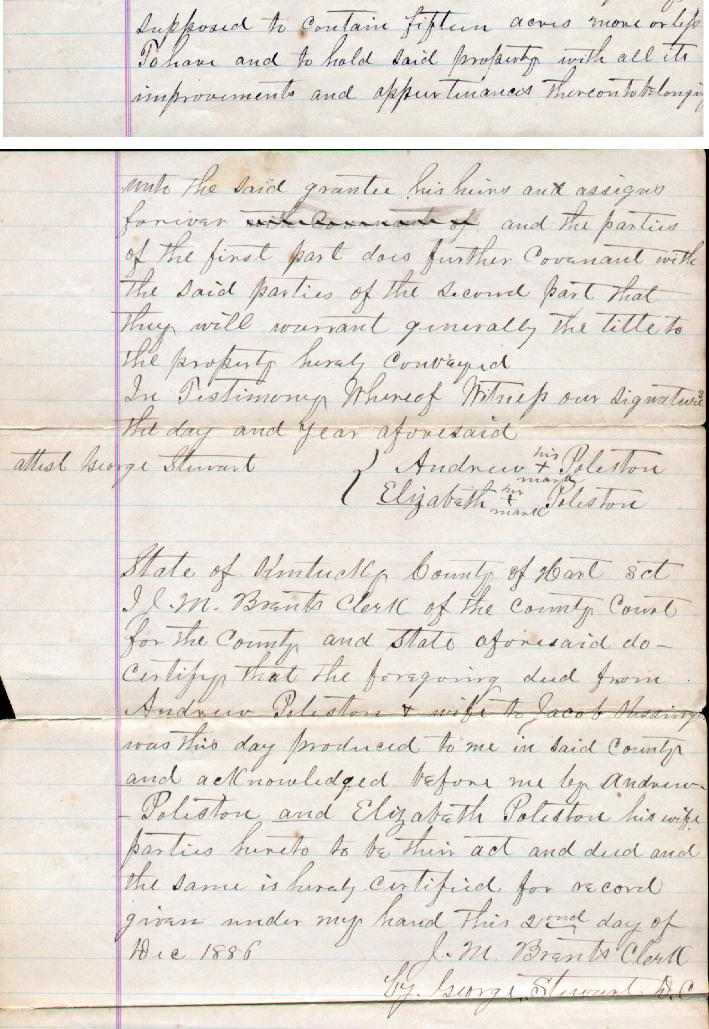 supposed to contain fifteen acres more or less
To have and to hold said property with all its
improvements and appurtinances thereonto belonging
unto the said grantee his heirs and assigns
foriver and the parties
of the first part does further covenant with
the said parties of the second part that
they will warrant generally the title to
the property hereby conveyed
In Testimony Whereof Witness our signature
the day and year aforesaid
attest George Stewart
Andrew his + mark Poleston
Elizabeth his + mark Poleston
State of Kentucky County of Hart Sct
I J. M. Brents Clerk of the County Court
for the County and State aforesaid do-
certify that the foregoing deed from
Andrew Poleston & wife to Jacob
was this day produced to me in said County
and acknowledged before me by Andrew-
- Poleston and Elizabeth Poleston his wife
parties hereto to be their act and deed and
the same is hereby certified for record
given under my hand this 2ond day of
Dec 1886 J. M. Brents Clerk
by George Stewart D.C